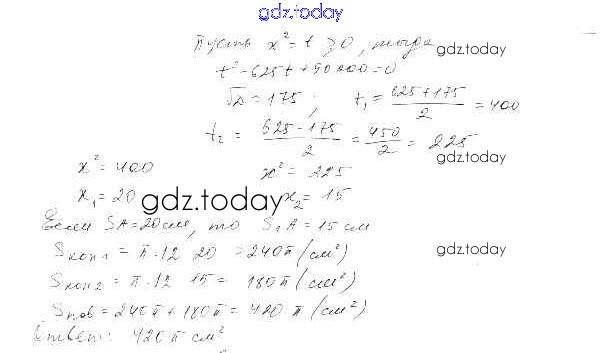 gdz.today
Пусть x² = t ⩾ 0, тогда
gdz.today
t² - 625t + 90000 = 0
√D = 175; t₁ = (625+175)/2 = 400
t₂ = (625-175)/2 = 450/2 = 225
gdz.today
x² = 400 x² = 225
x₁ = 20 x₂ = 15
gdz.today
Если SA = 20 см, то S₁A = 15 см
Sкон1 = π·12 20 = 240π (см²)
gdz.today
Sкон2 = π·12 15 = 180π (см²)
Sпов = 240π + 180π = 420π (см²)
Ответ: 420π см²